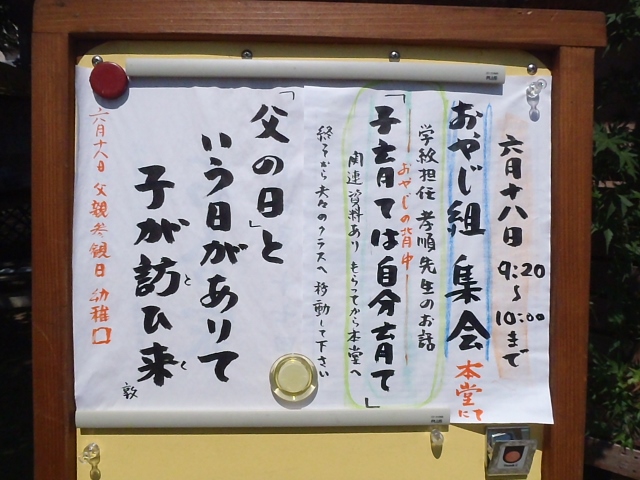 六月十八日 9:20～10:00まで
おやじ組 集会 本堂にて
学級担任 孝順先生のお話
おやじの背中
「子育ては自分育て」
関連資料あり もらってから本堂へ
終了から夫々のクラスへ移動して下さい
「父の日」と
いう日がありて
子が訪ひ来
と
く
敦
六月十八日 父親参観日 幼稚園